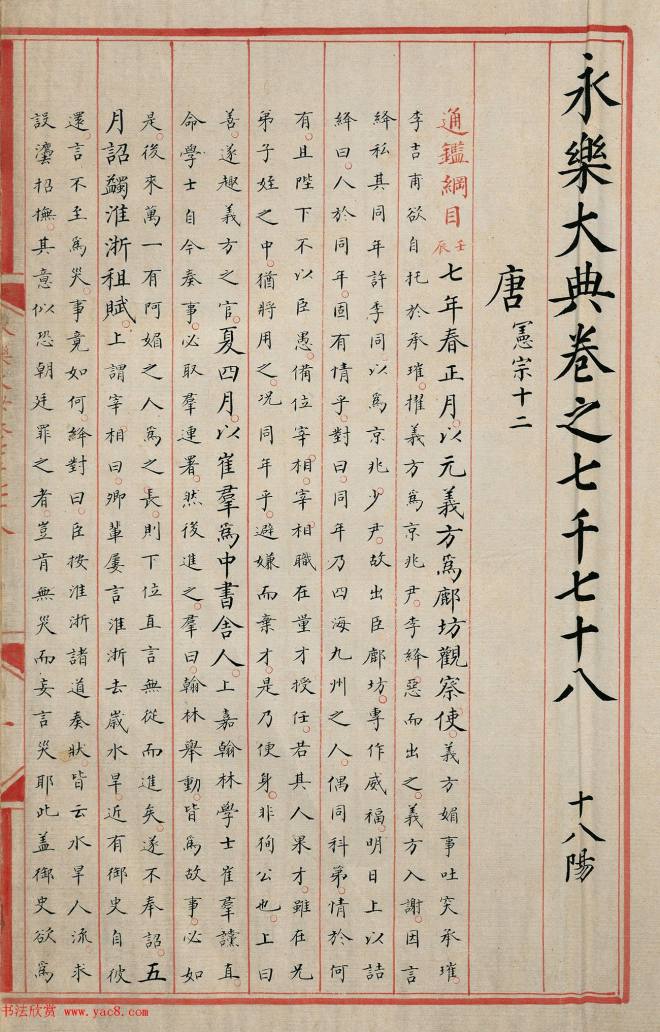 永樂大典卷之七千七十八　十八陽
唐 憲宗十二
通鑑綱目 壬辰 七年春正月。以元義方爲鄜坊觀察使。義方媚事吐突承璀。
李吉甫欲自托於承璀。擢義方爲京兆尹。李絳惡而出之。義方入謝。因言
絳私其同年許季同。以爲京兆少尹。故出臣鄜坊。專作威福。明日上以詰
絳曰。人於同年。固有情乎。對曰。同年乃四海九州之人。偶同科第。情於何
有。且陛下不以臣愚。備位宰相。宰相職在量才授任。若其人果才。雖在兄
弟子姪之中。猶將用之。况同年乎。避嫌而棄才。是乃便身。非狥公也。上曰
善。遂趣義方之官。夏四月。以崔羣爲中書舍人。上嘉翰林學士崔羣讜直
命學士自今奏事。必取羣連署。然後進之。羣曰。翰林舉動。皆爲故事。必如
是。後來萬一有阿媚之人爲之長。則下位直言無從而進矣。遂不奉詔。五
月詔蠲淮浙租賦。上謂宰相曰。卿輩屢言淮浙去歲水旱。近有御史自彼
還。言不至爲災。事竟如何。絳對曰。臣按淮浙諸道奏狀。皆云水旱人流。求
設灋招撫。其意似恐朝廷罪之者。豈肯無災而妄言災耶。此蓋御史欲爲
书法欣赏 www.yac8.com